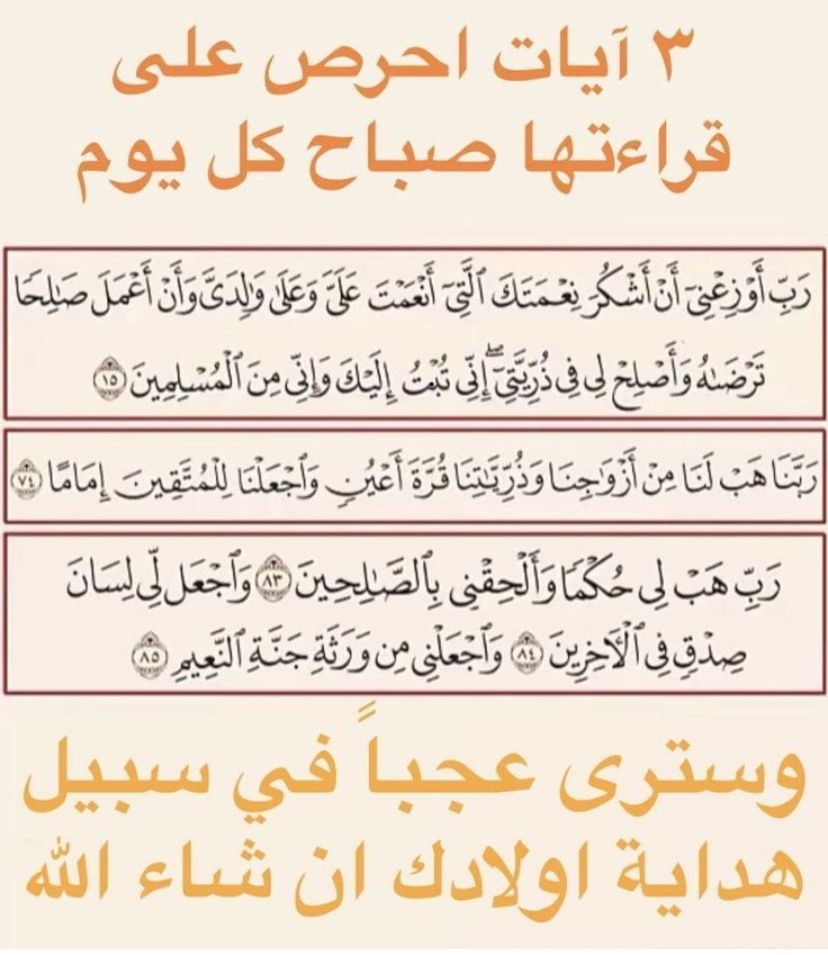 ٣ آيات احرص على
قراءتها صباح كل يوم
رَبِّ أَوْزِعْنِىٓ أَنْ أَشْكُرَ نِعْمَتَكَ ٱلَّتِىٓ أَنْعَمْتَ عَلَىَّ وَعَلَىٰ وَٰلِدَىَّ وَأَنْ أَعْمَلَ صَٰلِحًا
تَرْضَىٰهُ وَأَصْلِحْ لِى فِى ذُرِّيَّتِىٓ ۖ إِنِّى تُبْتُ إِلَيْكَ وَإِنِّى مِنَ ٱلْمُسْلِمِينَ ١٥
رَبَّنَا هَبْ لَنَا مِنْ أَزْوَٰجِنَا وَذُرِّيَّٰتِنَا قُرَّةَ أَعْيُنٍ وَٱجْعَلْنَا لِلْمُتَّقِينَ إِمَامًا ٧٤
رَبِّ هَبْ لِى حُكْمًا وَأَلْحِقْنِى بِٱلصَّٰلِحِينَ ٨٣ وَٱجْعَل لِّى لِسَانَ
صِدْقٍ فِى ٱلْءَاخِرِينَ ٨٤ وَٱجْعَلْنِى مِن وَرَثَةِ جَنَّةِ ٱلنَّعِيمِ ٨٥
وسترى عجباً في سبيل
هداية اولادك ان شاء الله